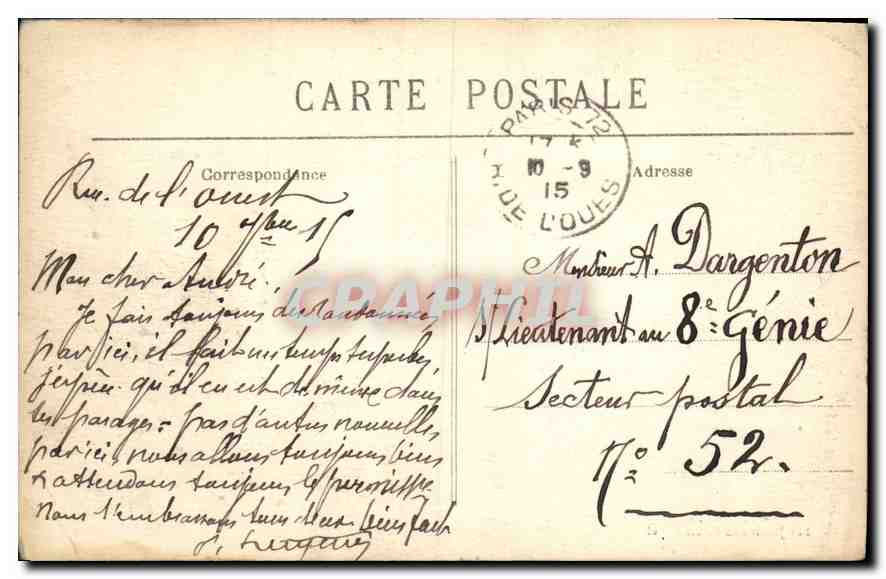 CARTE POSTALE
Correspondance
Adresse
PARIS-72
10 - 9
15
R. DE L'OUEST
Rue de l'ouest
10 7bre 15
Mon cher André,
Je fais toujours des randonnées
par ici, il fait un temps superbe,
j'espère qu'il en est de même dans
tes parages = pas d'autres nouvelles
par ici, nous allons toujours bien
& attendons toujours le permissre
Nous t'embrassons tous deux bien fort
Monsieur A. Dargenton
s/Lieutenant au 8e Génie
Secteur postal
No 52.
CPAPHIL